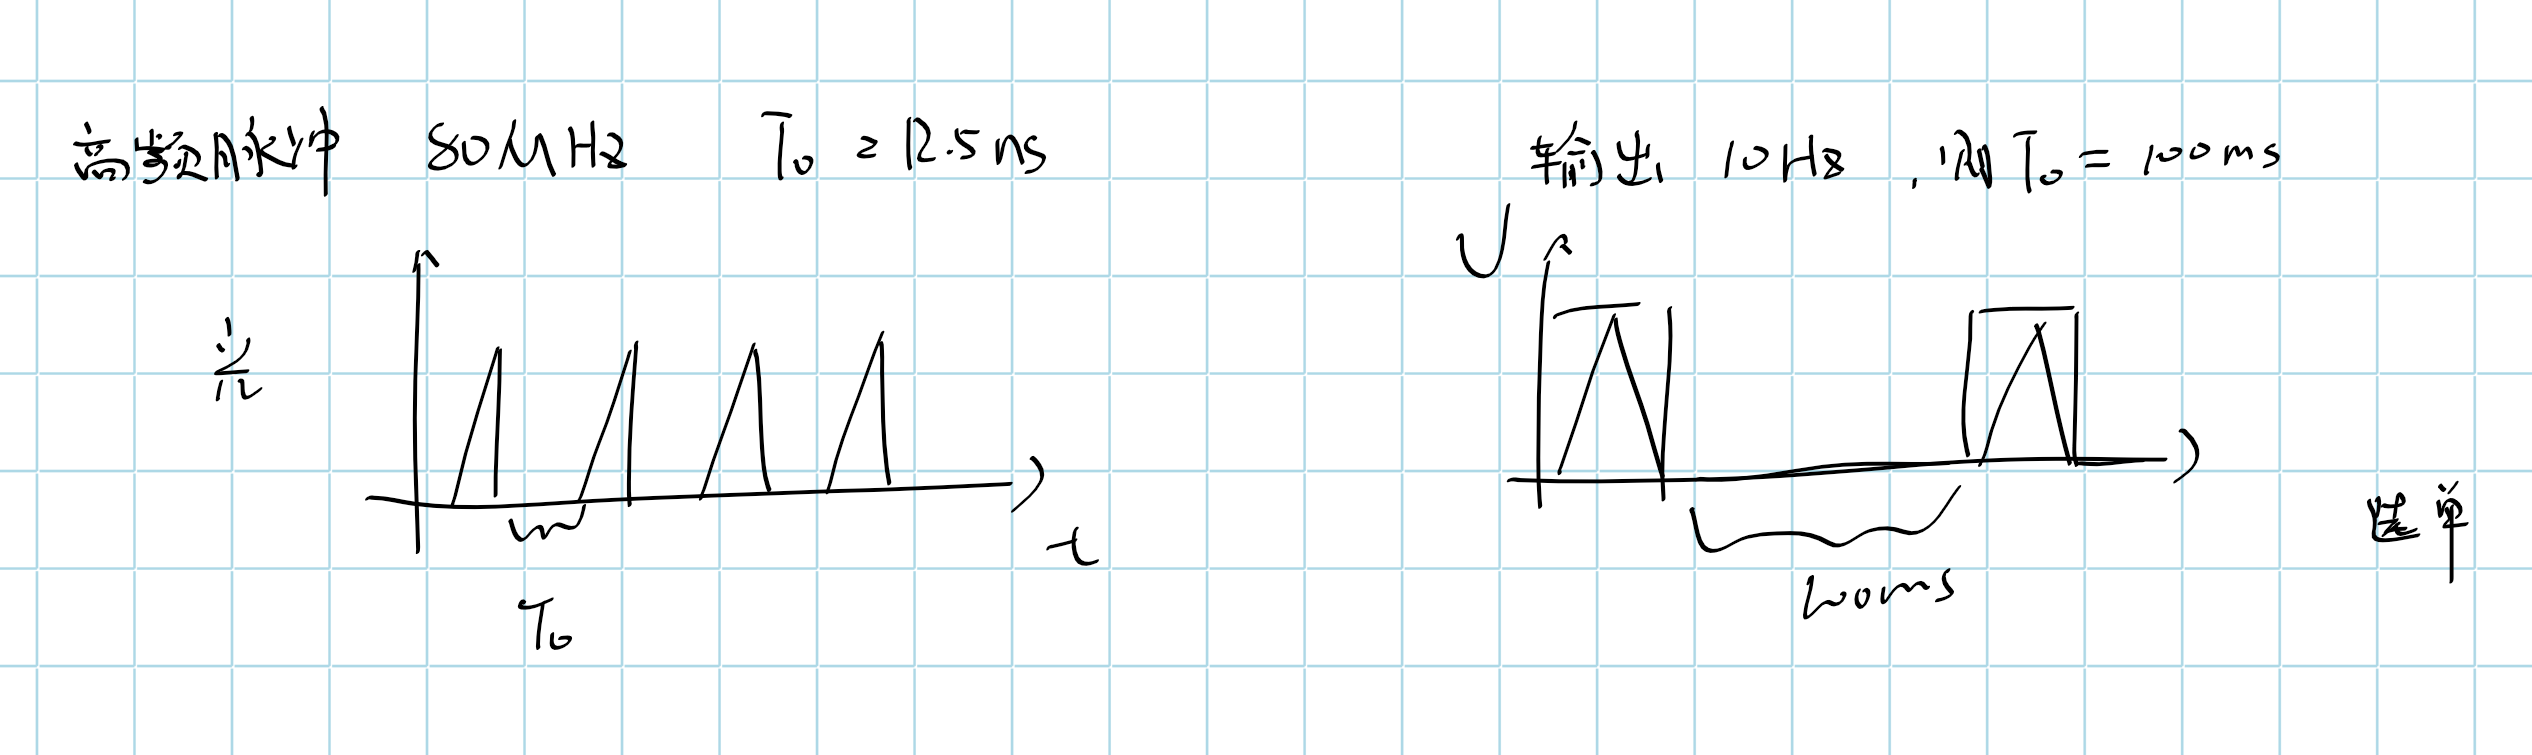 高频脉冲 80MHz T₀ = 12.5ns
输出 10Hz , 则 T₀ = 100ms
U
光
t
T₀
100ms
选单